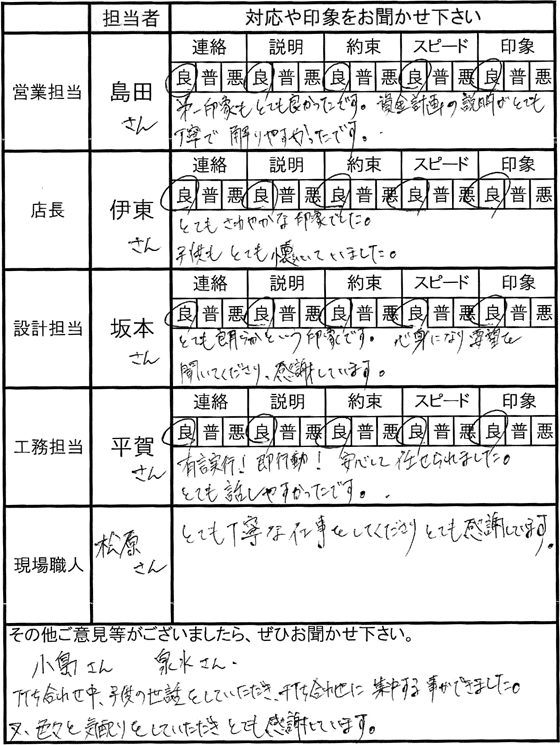 担当者 対応や印象をお聞かせ下さい
営業担当 島田さん
連絡 説明 約束 スピード 印象
良 普 悪 良 普 悪 良 普 悪 良 普 悪 良 普 悪
第一印象もとても良かったです。資金計画の説明がとても
丁寧で解りやすかったです。
店長 伊東さん
連絡 説明 約束 スピード 印象
良 普 悪 良 普 悪 良 普 悪 良 普 悪 良 普 悪
とてもさわやかな印象でした。
子供もとても懐いていました。
設計担当 坂本さん
連絡 説明 約束 スピード 印象
良 普 悪 良 普 悪 良 普 悪 良 普 悪 良 普 悪
とても朗らかという印象です。心身になり要望を
聞いてくださり、感謝しています。
工務担当 平賀さん
連絡 説明 約束 スピード 印象
良 普 悪 良 普 悪 良 普 悪 良 普 悪 良 普 悪
有言実行！即行動！安心して任せられました。
とても話しやすかったです。
現場職人 松原さん
とても丁寧な仕事をしてくださりとても感謝しています。
その他ご意見等がございましたら、ぜひお聞かせ下さい。
小島さん 泉水さん
打ち合わせ中、子供の世話をしていただき、打ち合わせに集中する事ができました。
又、色々と気配りをしていただきとても感謝しています。